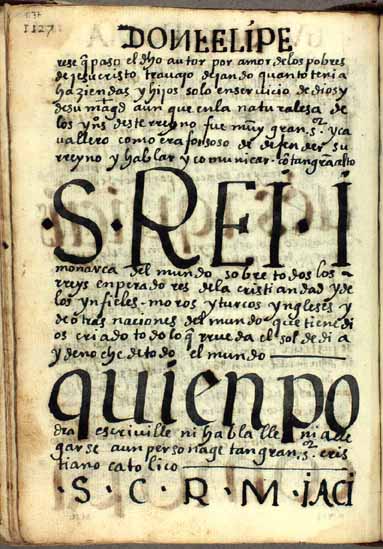 1127
DON FELÍPE
rese q̄ paso el dho autor por amor de los pobres
de jesucristo trauajo dejando quanto tenia
haziendas y hijos solo en seruicio de dios y
de su mag̃d aun que en la naturalesa de
los yn̄s deste rreyno fue muy gran s.r y ca
uallero como era forsoso de defender su
rreyno y hablar y comunicar cō tan gran alto
·S·REÍ·Í
monarca del mundo sobre todos los
rreys enperadores de la cristiandad y de
los ynfieles moros y turcos yngleses y
de otras naciones del mundo que tiene di
os criado todo lo q̄ rrueda el sol de di a
y de noche de todo el mundo
quien po
dra escriuille ni habla lle ni alle
garse a un personage tan gran s.r cris
tiano catolico
·S·C·R·M·jACí